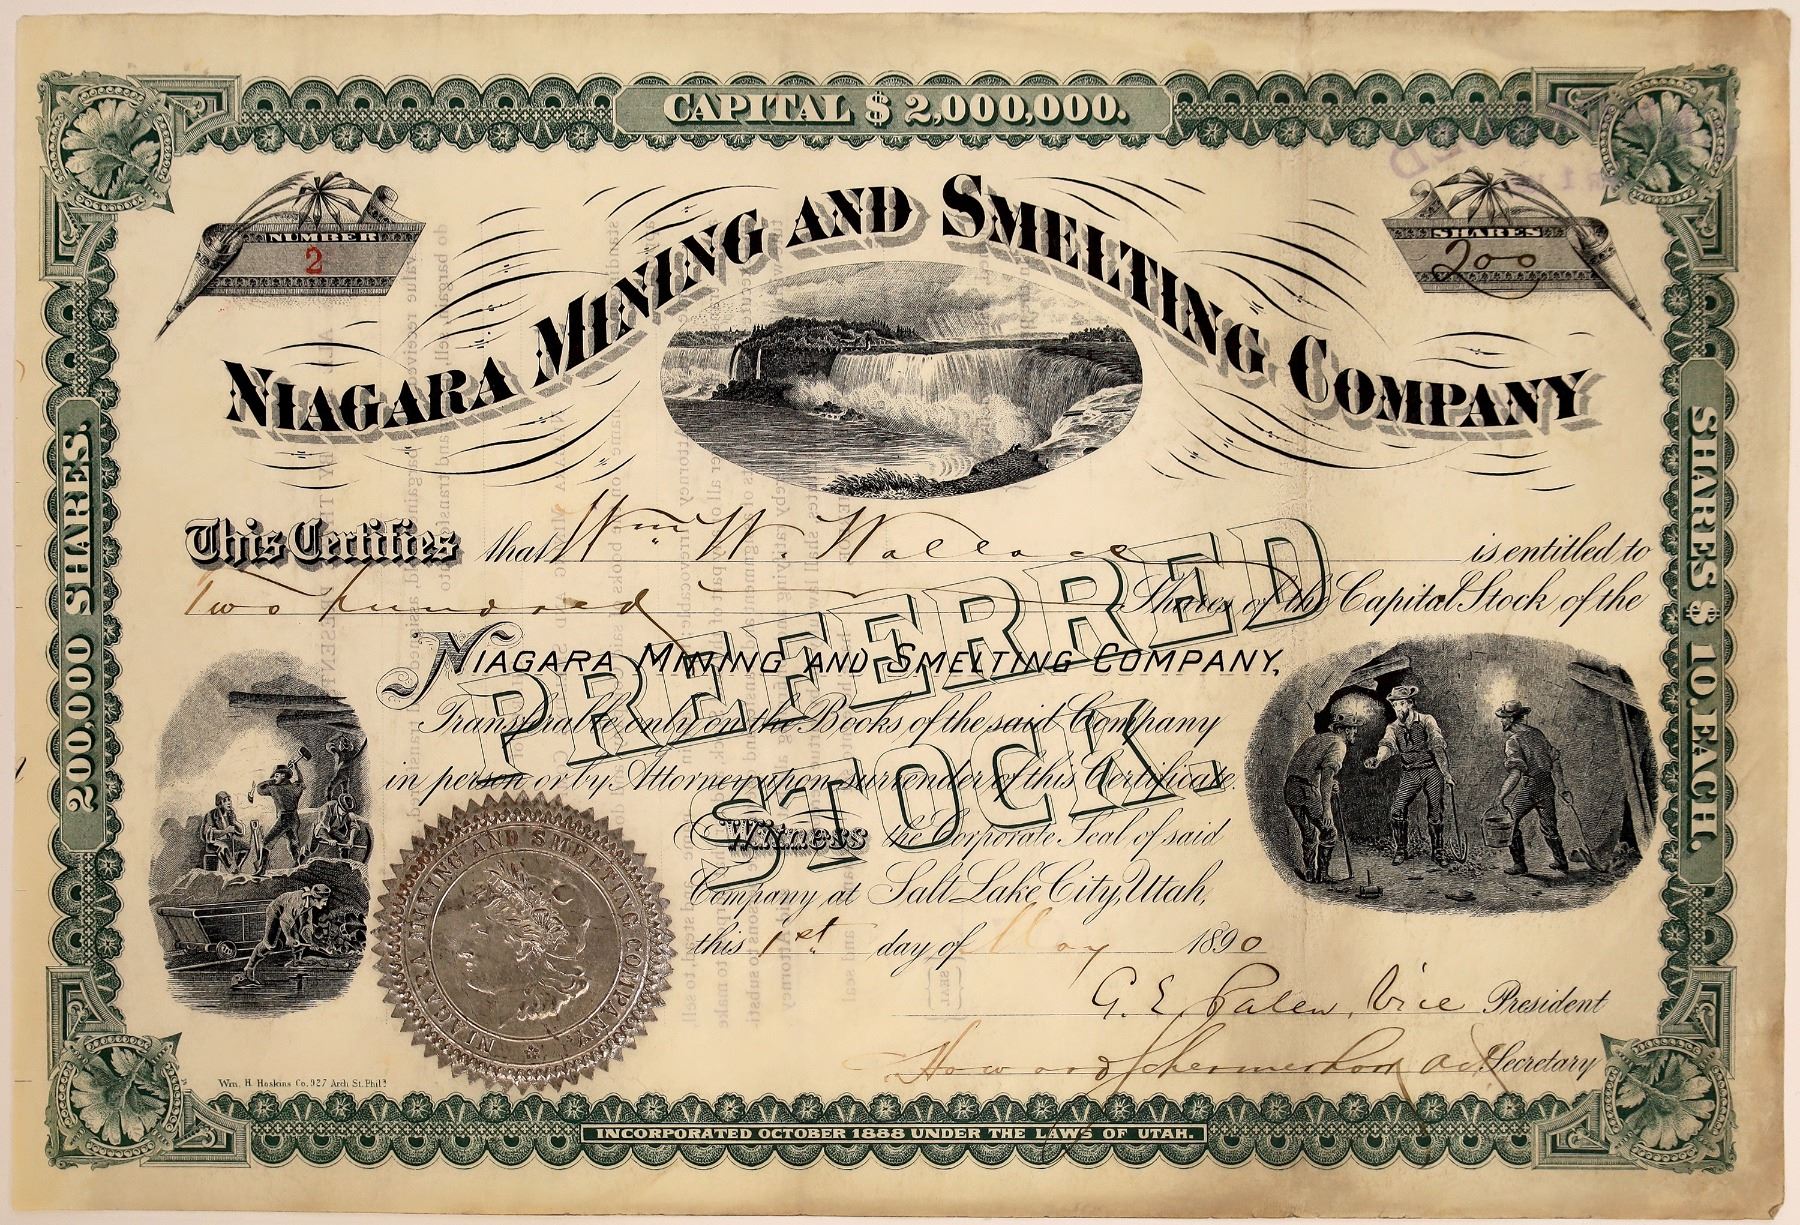 CAPITAL $ 2,000,000.
NUMBER
2
SHARES
200
NIAGARA MINING AND SMELTING COMPANY
200,000 SHARES.
SHARES $ 10. EACH.
This Certifies that Wm. W. Wallace is entitled to
Two hundred Shares of the Capital Stock of the
NIAGARA MINING AND SMELTING COMPANY,
Transferable only on the Books of the said Company
in person or by Attorney upon surrender of this Certificate.
PREFERRED
STOCK.
Witness the Corporate Seal of said
Company at Salt Lake City, Utah,
this 1st day of May 1890
G. E. Palen, Vice President
Howard Schermerhorn Secretary
NIAGARA MINING AND SMELTING COMPANY.
Wm. H. Hoskins Co. 927 Arch St. Phila
INCORPORATED OCTOBER 1888 UNDER THE LAWS OF UTAH.